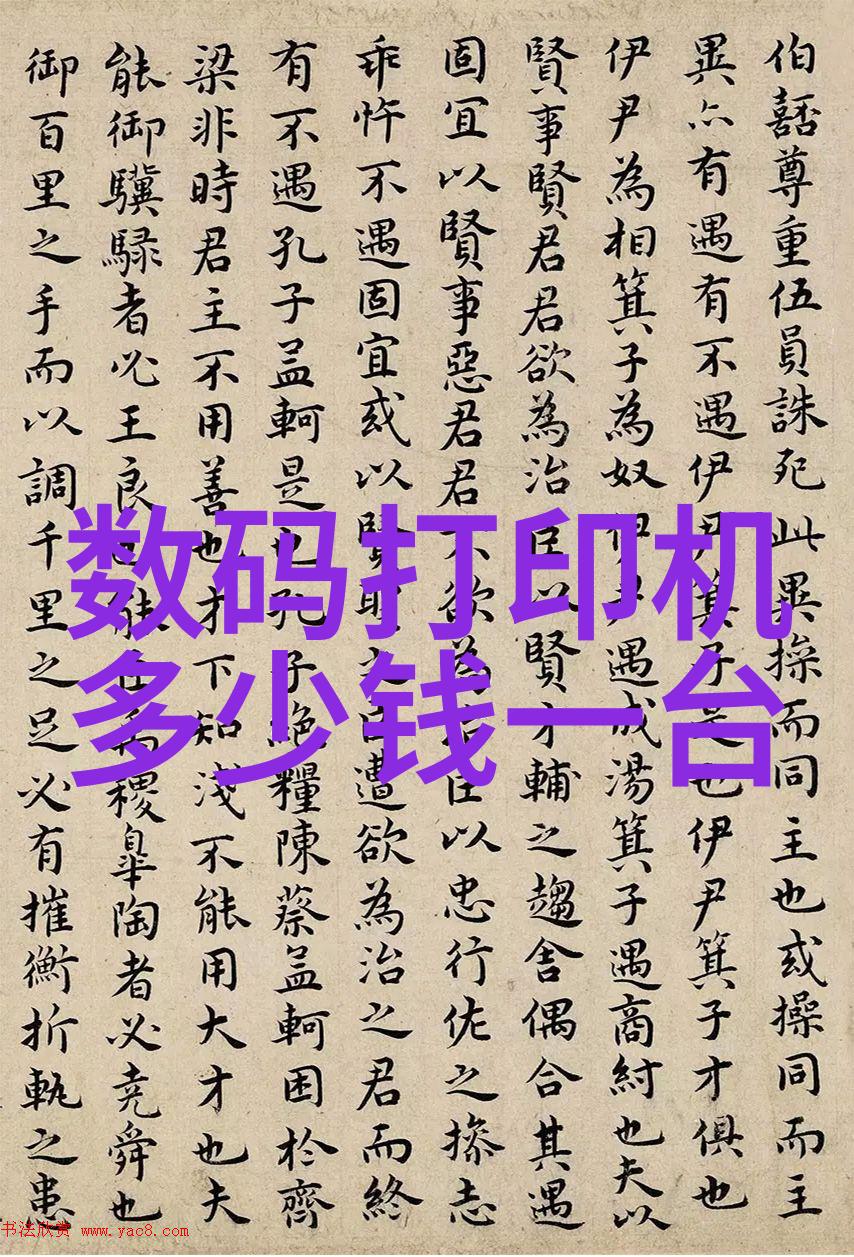 伯嚭尊重伍員誅死此異操而同主也或操同而主
異亦有遇有不遇伊尹箕子是也伊尹箕子才俱也
伊尹為相箕子為奴伊尹遇成湯箕子遇商紂也夫以
賢事賢君君欲為治臣以賢才輔之趨舍偶合其遇
固宜以賢事惡君君不欲為治臣以忠行佐之操志
乖忤不遇固宜或以賢聖之臣遭欲為治之君而終
有不遇孔子孟軻是也孔子絕糧陳蔡孟軻困於齊
梁非時君主不用善也才下知淺不能用大才也夫
能御驥騄者必王良也能臣禹稷皋陶者必堯舜也
御百里之手而以調千里之足必有摧衡折軛之患
数码打印机
多少钱一台
书法欣赏 www.yac8.com